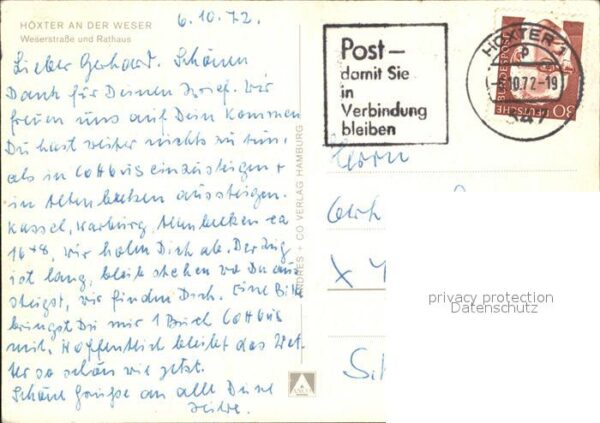 HÖXTER AN DER WESER
Weserstraße und Rathaus
6.10.72.
Lieber Gerhart. Schönen
Dank für Deinen Brief. Wir
freuen uns auf Dein Kommen
Du hast weiter nichts zu tun,
als in Cottbus einzusteigen +
in Altenbeken aussteigen.
Kassel, Warburg, Altenbeken ca
16+8, wir holen Dich ab. Der Zug
ist lang, bleib stehen wo Du aus
steigst, wir finden Dich. Eine Bitte
bringst Du mir 1 Buch Cottbus
mit. Hoffentlich bleibt das Wet-
ter so schön wie jetzt.
Schöne Grüße an alle Deine
ANDRES + CO VERLAG HAMBURG
Post –
damit Sie
in
Verbindung
bleiben
HÖXTER 1
10.72-19
347
DEUTSCHE BUNDESPOST
30
Herrn
X
privacy protection
Datenschutz